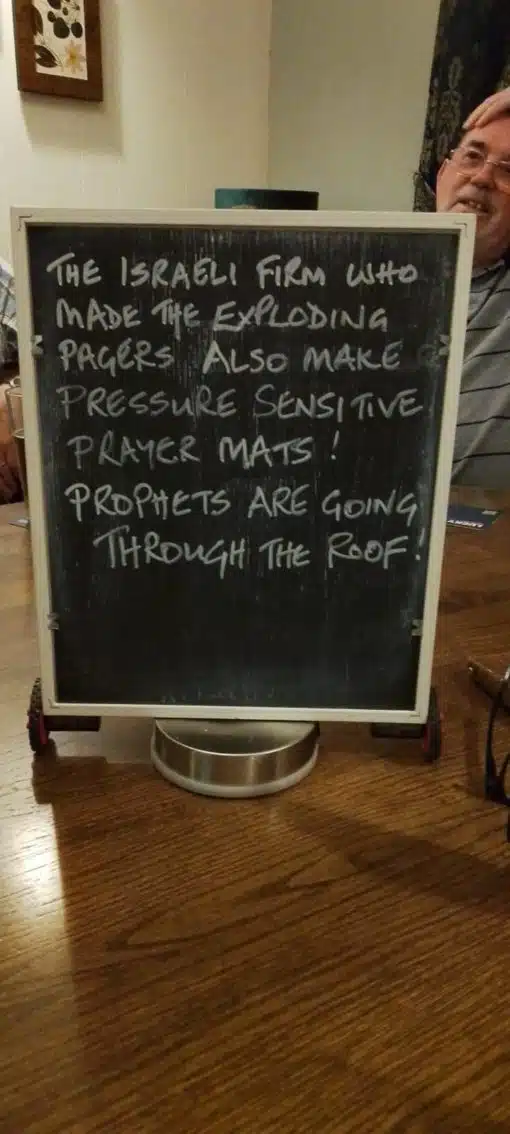 THE ISRAELI FIRM WHO
MADE THE EXPLODING
PAGERS ALSO MAKE
PRESSURE SENSITIVE
PRAYER MATS!
PROPHETS ARE GOING
THROUGH THE ROOF!